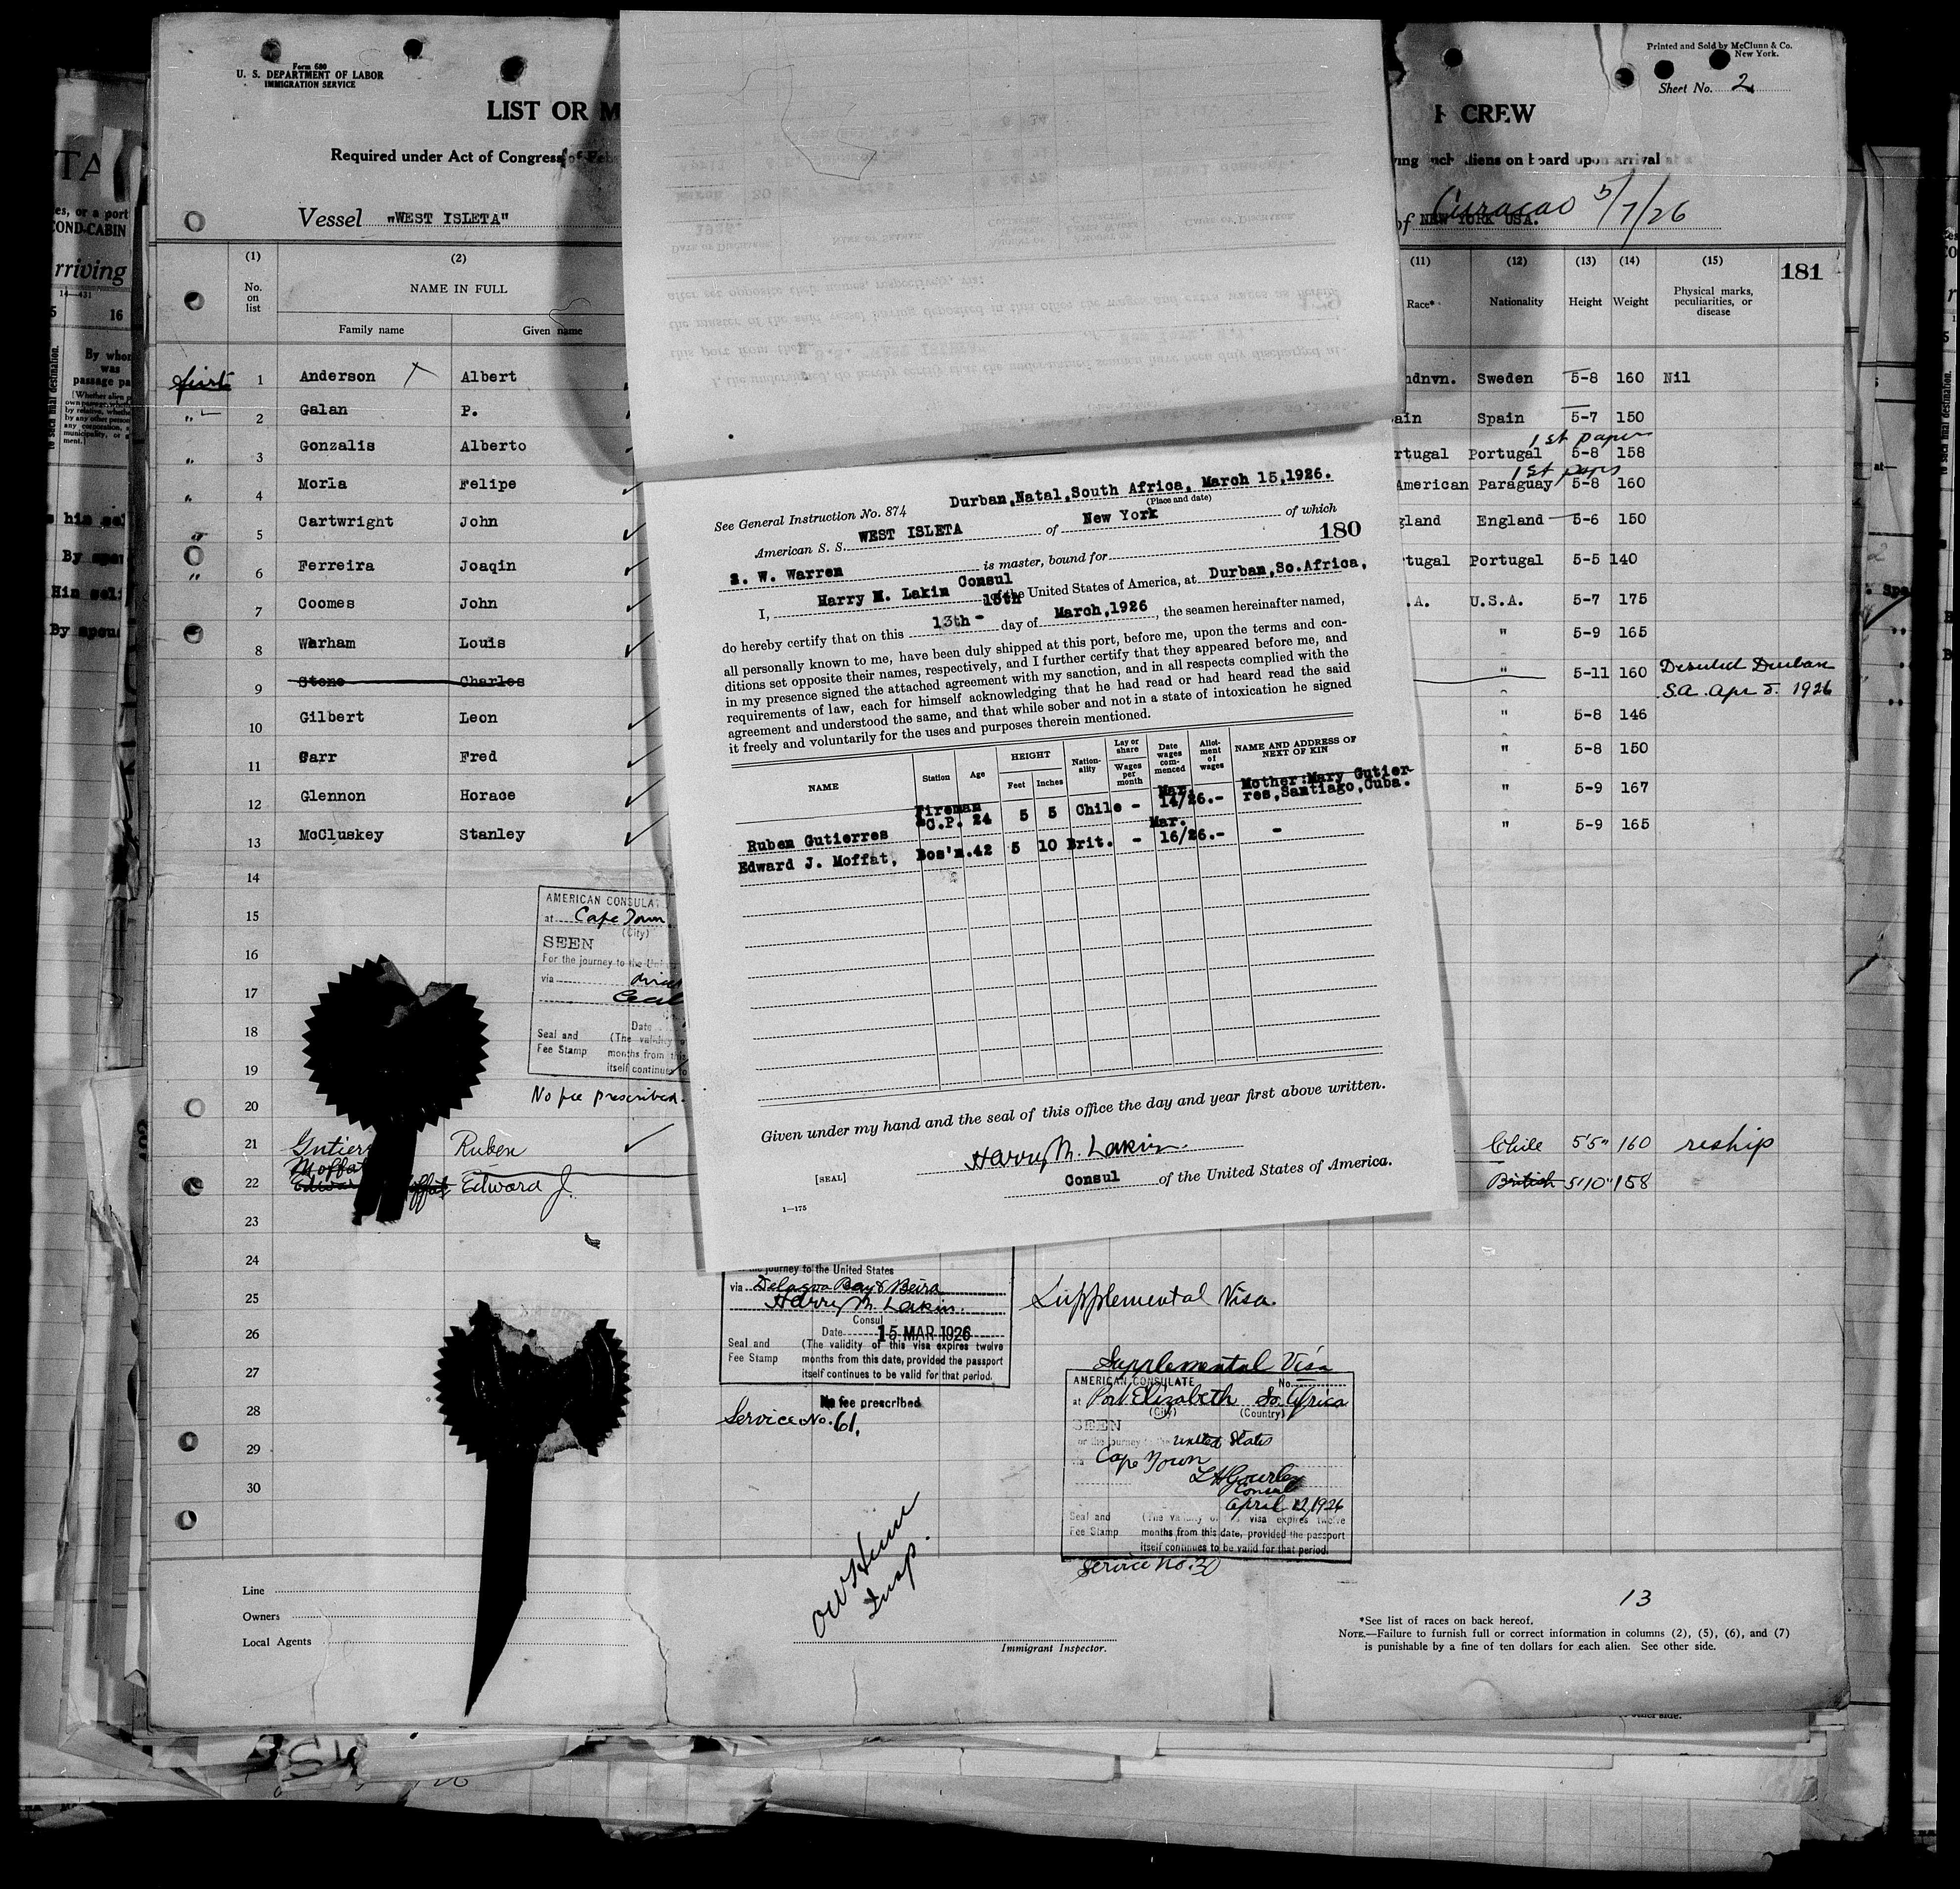 Form 680
U. S. DEPARTMENT OF LABOR
IMMIGRATION SERVICE
Printed and Sold by McClunn & Co.
New York.
Sheet No. 2
LIST OR M
F CREW
Required under Act of Congress of Feb
ving such aliens on board upon arrival at a
Vessel "WEST ISLETA"
of NEW YORK USA. Curacao 5/7/26
181
(1) (2) (11) (12) (13) (14) (15)
No. on list
NAME IN FULL
Family name Given name
Race* Nationality Height Weight Physical marks, peculiarities, or disease
first 1 Anderson X Albert ndnvn. Sweden 5-8 160 Nil
" 2 Galan P. ain Spain 5-7 150
1st papers
" 3 Gonzalis Alberto rtugal Portugal 5-8 158
1st paprs
" 4 Moria Felipe American Paraguay 5-8 160
" 5 Cartwright John gland England 5-6 150
" 6 Ferreira Joaqin rtugal Portugal 5-5 140
7 Coomes John .A. U.S.A. 5-7 175
8 Warham Louis " 5-9 165
9 Stone Charles " 5-11 160 Deserted Durban
S.A. Apr 5. 1926
10 Gilbert Leon " 5-8 146
11 Garr Fred " 5-8 150
12 Glennon Horace " 5-9 167
13 McCluskey Stanley " 5-9 165
14
15
16
17
18
19
20
21 Gutier Ruben Chile 5'5" 160 reship
Moffat
22 Edwar offat Edward J. British 5'10" 158
23
24
25
26
27
28
29
30
AMERICAN CONSULAT
at Cape Town
(City)
SEEN
For the journey to the Uni
via
Cecil
Date
Seal and (The validity o
Fee Stamp months from this
itself continues to
No fee prescribed.
Durban,Natal,South Africa, March 15,1926.
See General Instruction No. 874 (Place and date)
American S. S. WEST ISLETA of New York of which
180
W. Warren is master, bound for
I, Harry M. Lakin Consul of the United States of America, at Durban,So.Africa,
15th
do hereby certify that on this 13th - day of March,1926, the seamen hereinafter named,
all personally known to me, have been duly shipped at this port, before me, upon the terms and con-
ditions set opposite their names, respectively, and I further certify that they appeared before me, and
in my presence signed the attached agreement with my sanction, and in all respects complied with the
requirements of law, each for himself acknowledging that he had read or had heard read the said
agreement and understood the same, and that while sober and not in a state of intoxication he signed
it freely and voluntarily for the uses and purposes therein mentioned.
NAME Station Age HEIGHT Feet Inches Nation-ality Lay or share Wages per month Date wages com-menced Allot-ment of wages NAME AND ADDRESS OF NEXT OF KIN
Ruben Gutierres Fireman C.P. 24 5 5 Chile - Mar. 14/26.- Mother:Mary Gutier-res,Santiago,Cuba.
Edward J. Moffat, Bos'n.42 5 10 Brit. - Mar. 16/26.- -
Given under my hand and the seal of this office the day and year first above written.
Harry M. Lakin.
[SEAL]
Consul of the United States of America.
1—175
the journey to the United States
via Delagoa Bay & Beira
Harry M. Lakin.
Consul
Date 15 MAR 1926
Seal and (The validity of this visa expires twelve
Fee Stamp months from this date, provided the passport
itself continues to be valid for that period.
No fee prescribed
Service No. 61.
Supplemental Visa.
Supplemental Visa
AMERICAN CONSULATE No.
at Port Elizabeth So. Africa
(City) (Country)
SEEN
for the journey to the United States
via Cape Town
Consul
April 12, 1926
Seal and (The validity of this visa expires twelve
Fee Stamp months from this date, provided the passport
itself continues to be valid for that period.
Service No. 30
Insp.
Line
Owners
Local Agents
Immigrant Inspector.
13
*See list of races on back hereof.
NOTE.—Failure to furnish full or correct information in columns (2), (5), (6), and (7)
is punishable by a fine of ten dollars for each alien. See other side.
es, or a port
COND-CABIN
rriving
16
By whom
was
passage pa
By spou
Him self
By spou